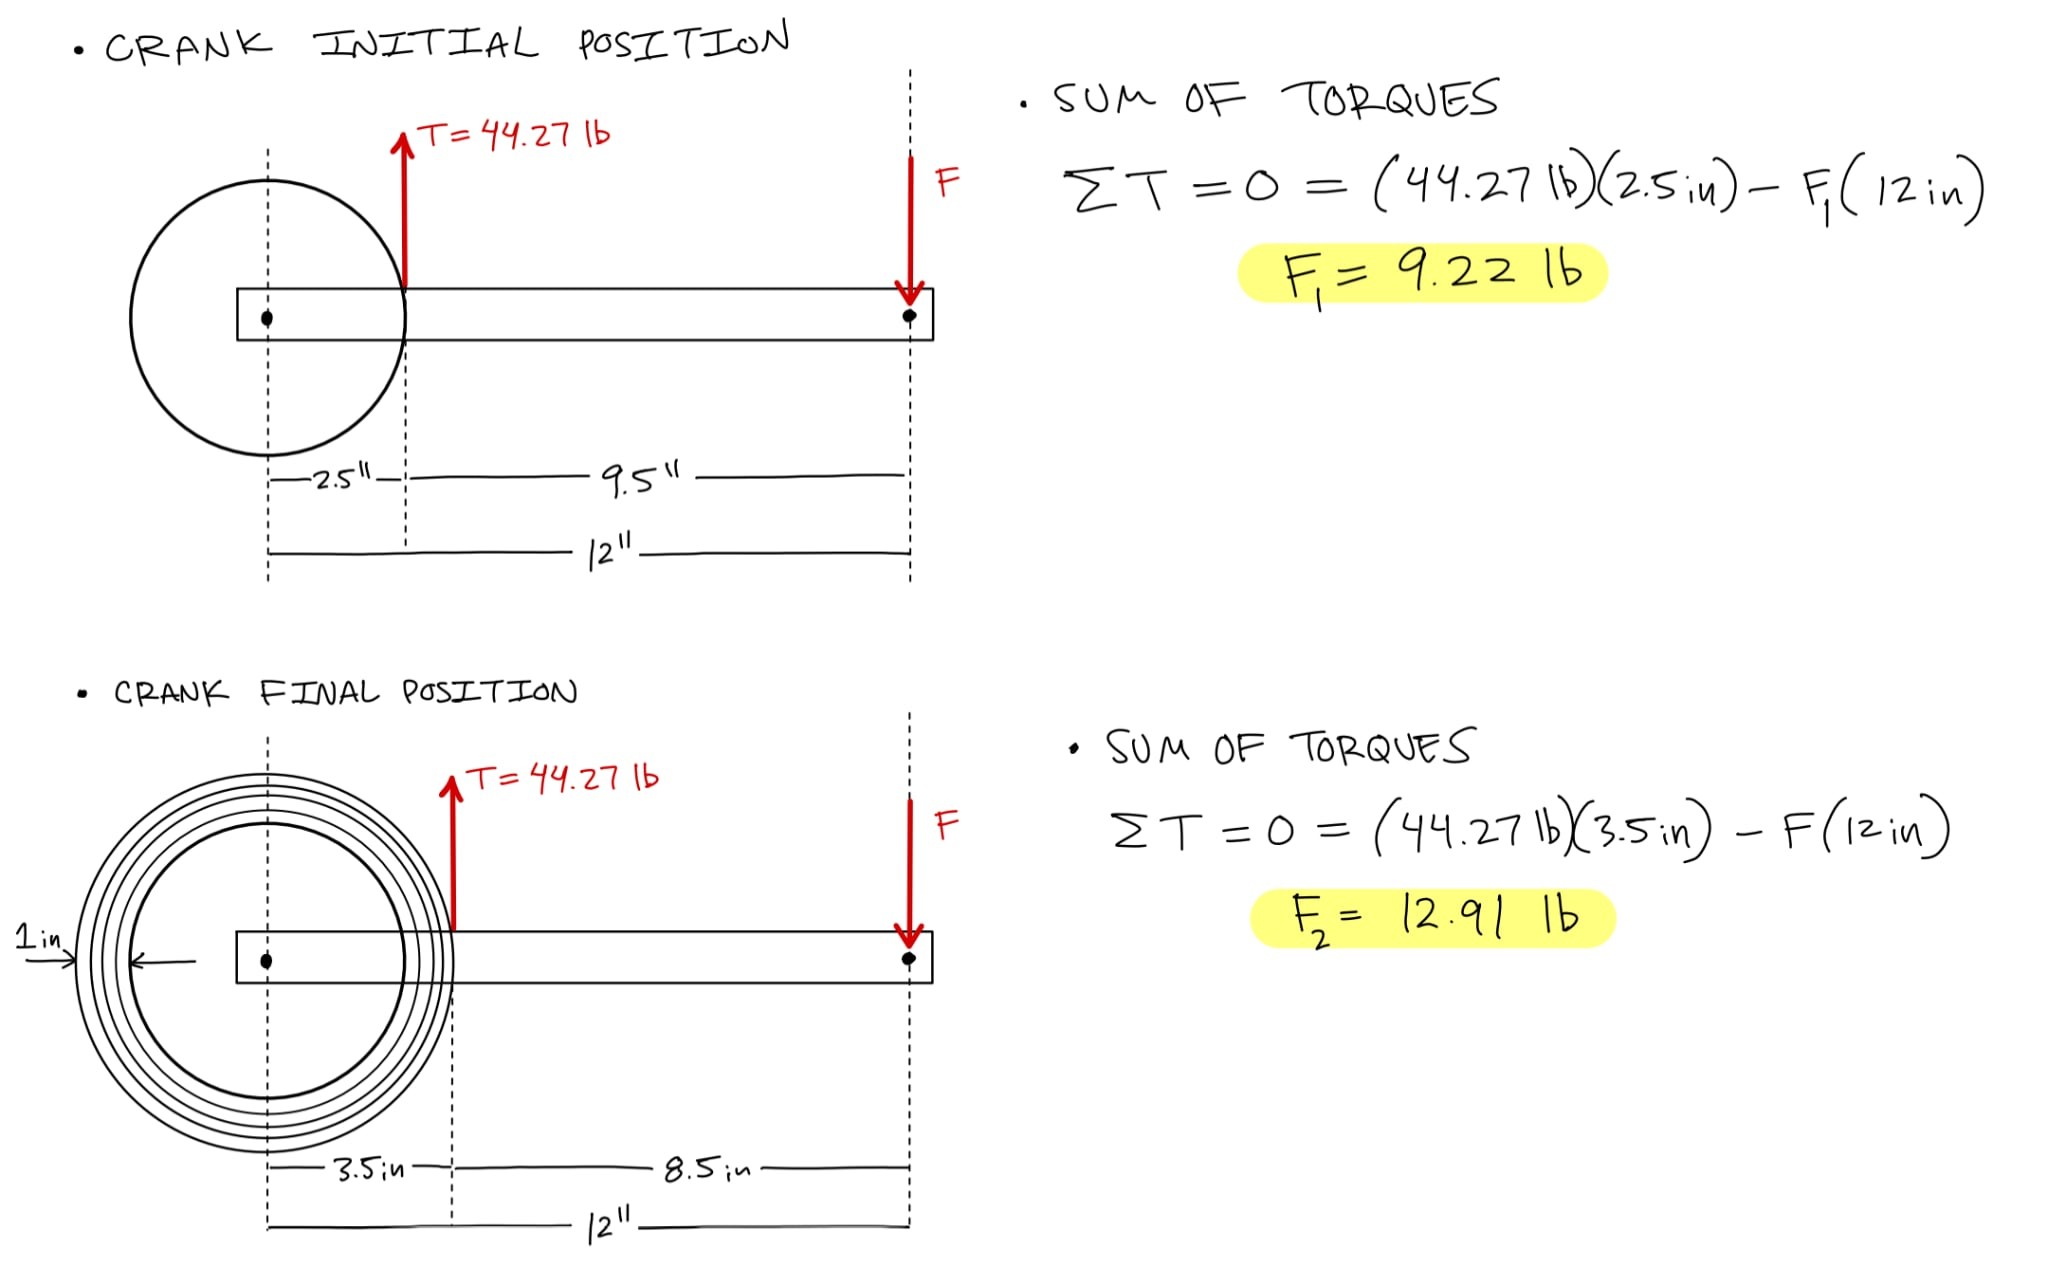 • CRANK INITIAL POSITION
T = 44.27 lb
F
2.5"
9.5"
12"
• SUM OF TORQUES
ΣT = 0 = (44.27 lb)(2.5 in) - F₁(12 in)
F₁ = 9.22 lb
• CRANK FINAL POSITION
T = 44.27 lb
F
1 in
3.5 in
8.5 in
12"
• SUM OF TORQUES
ΣT = 0 = (44.27 lb)(3.5 in) - F(12 in)
F₂ = 12.91 lb